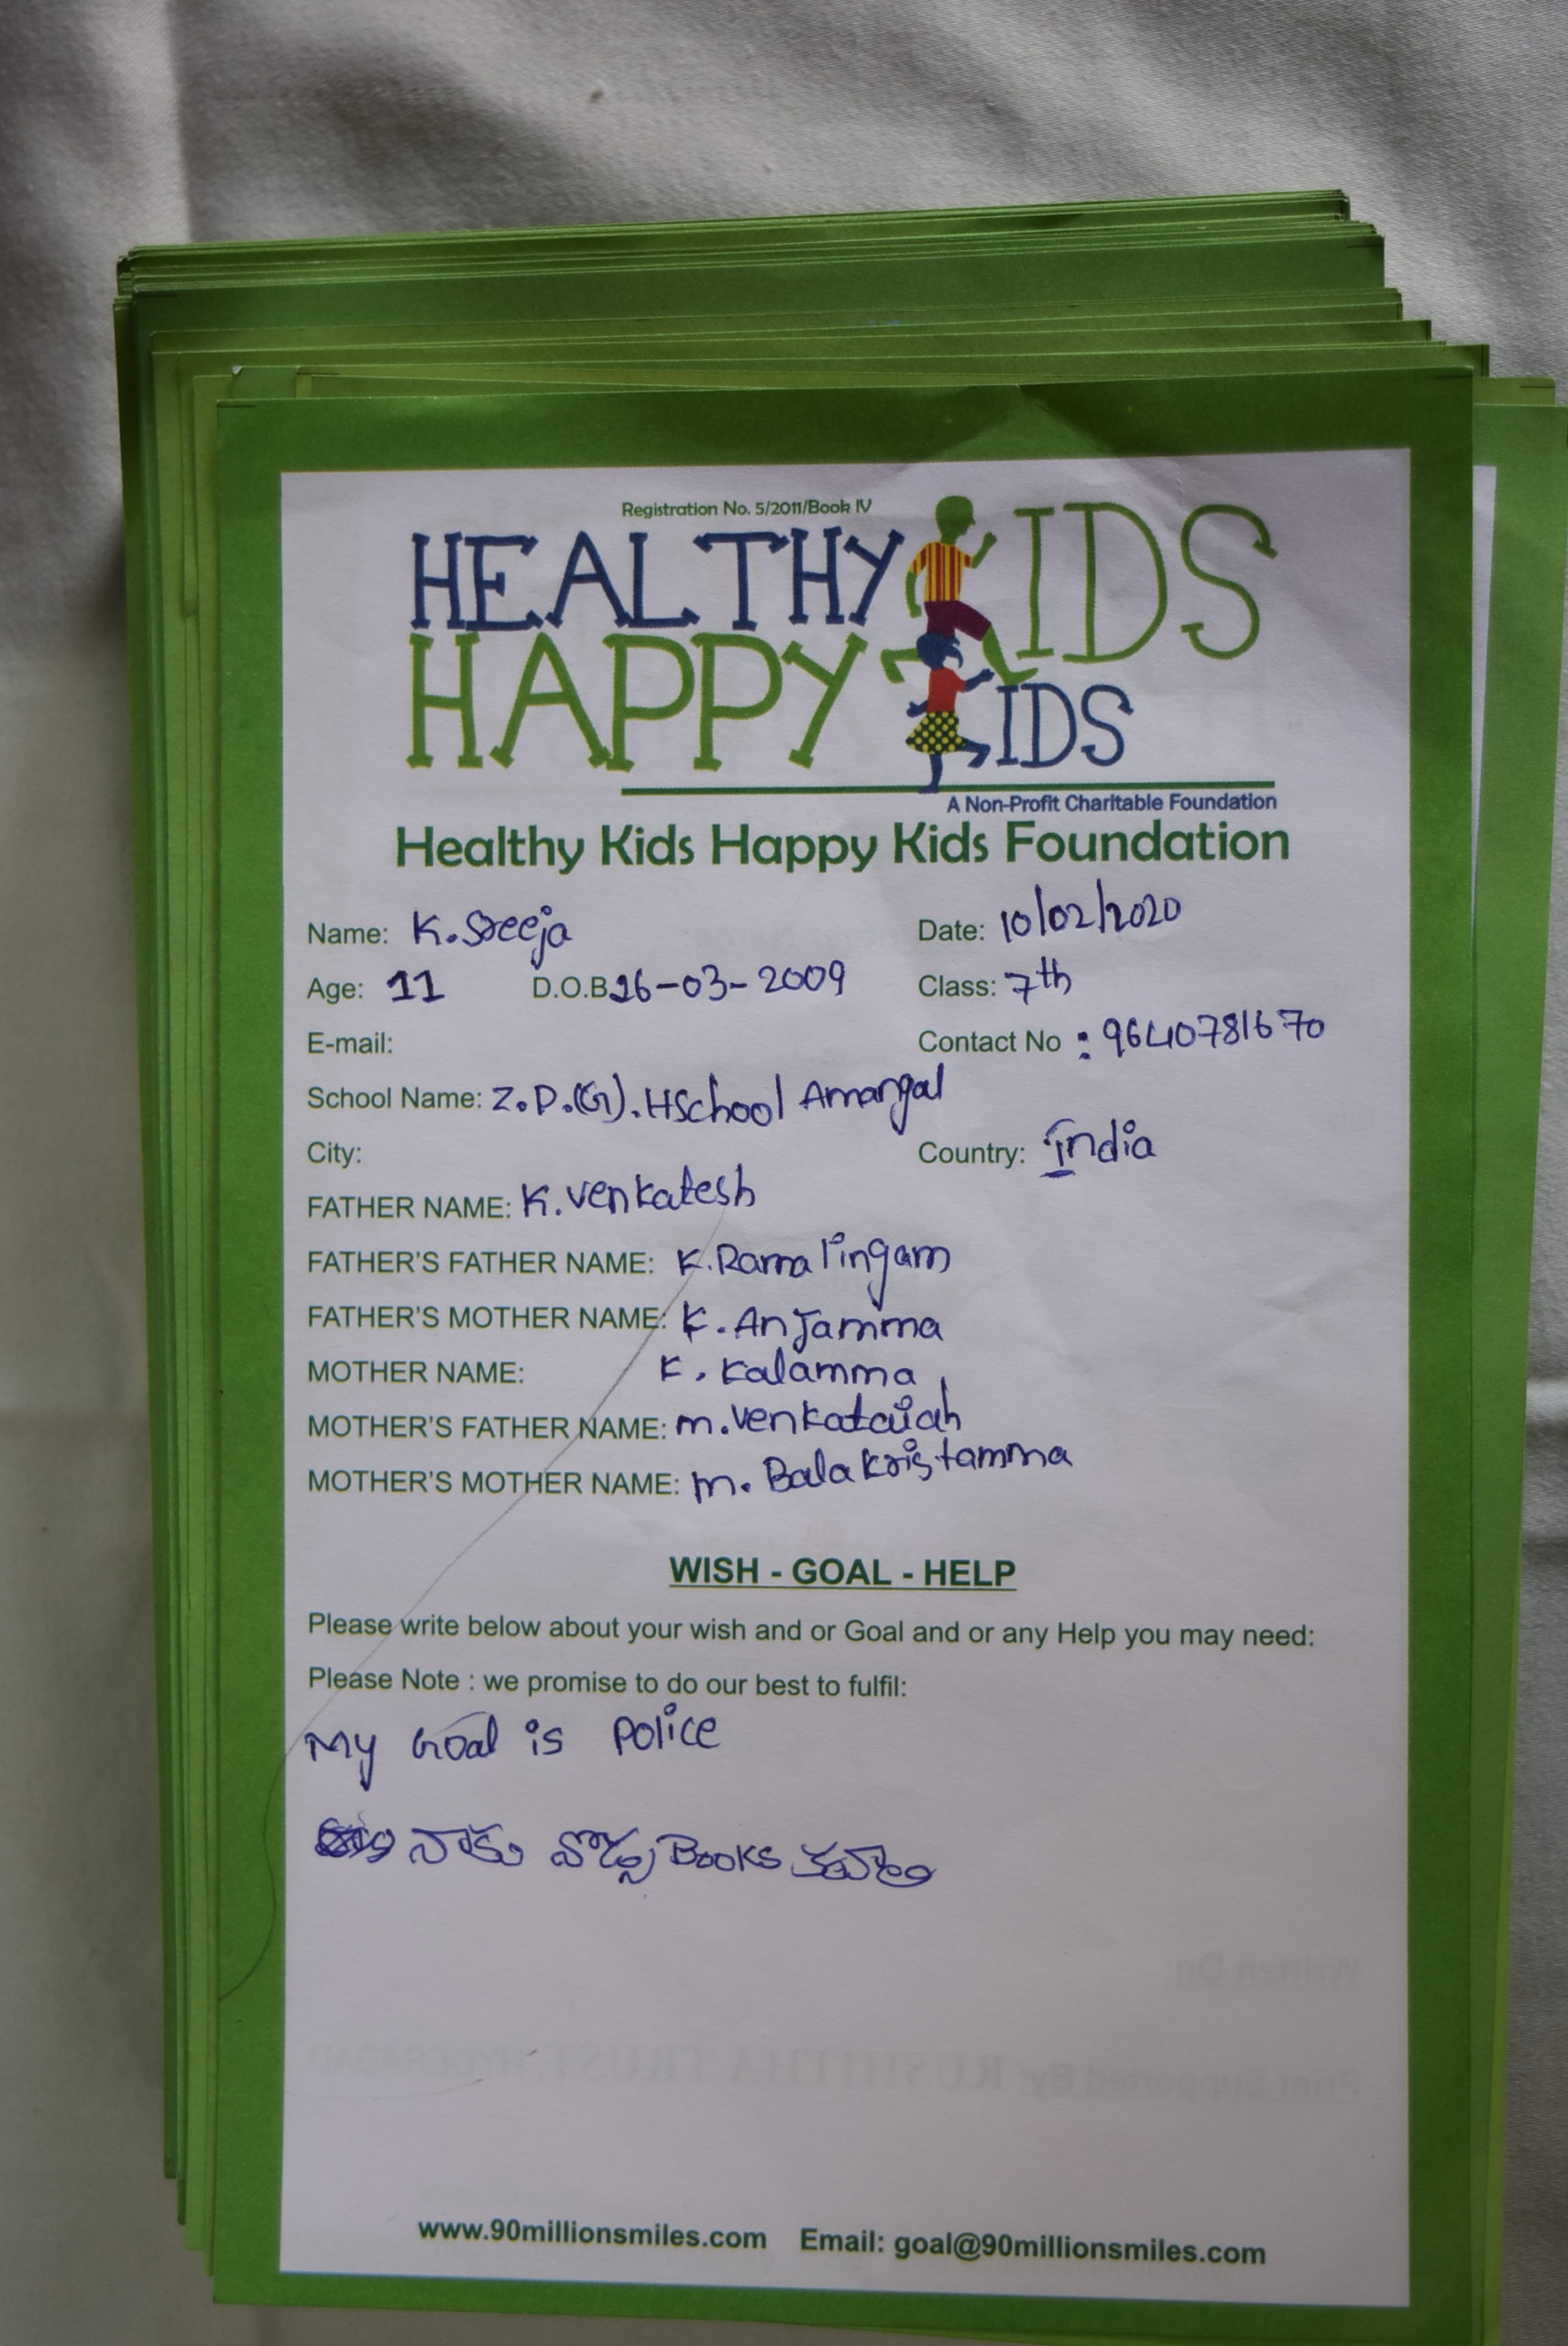 Registration No. 5/2011/Book IV
HEALTHY KIDS
HAPPY KIDS
A Non-Profit Charitable Foundation
Healthy Kids Happy Kids Foundation
Name: K. Sreeja Date: 10/02/2020
Age: 11 D.O.B 26-03-2009 Class: 7th
E-mail: Contact No : 9640781670
School Name: Z.P.(G).HSchool Amangal
City: Country: India
FATHER NAME: K. Venkatesh
FATHER'S FATHER NAME: K. Ramalingam
FATHER'S MOTHER NAME: K. Anjamma
MOTHER NAME: K. Kalamma
MOTHER'S FATHER NAME: M. Venkataiah
MOTHER'S MOTHER NAME: M. Balakristamma
WISH - GOAL - HELP
Please write below about your wish and or Goal and or any Help you may need:
Please Note : we promise to do our best to fulfil:
My Goal is Police
నాకు నోట్సు Books కావాలి
Written On:
Print Supported By: RUSHITHA TRUST, HYDERABAD
www.90millionsmiles.com Email: goal@90millionsmiles.com